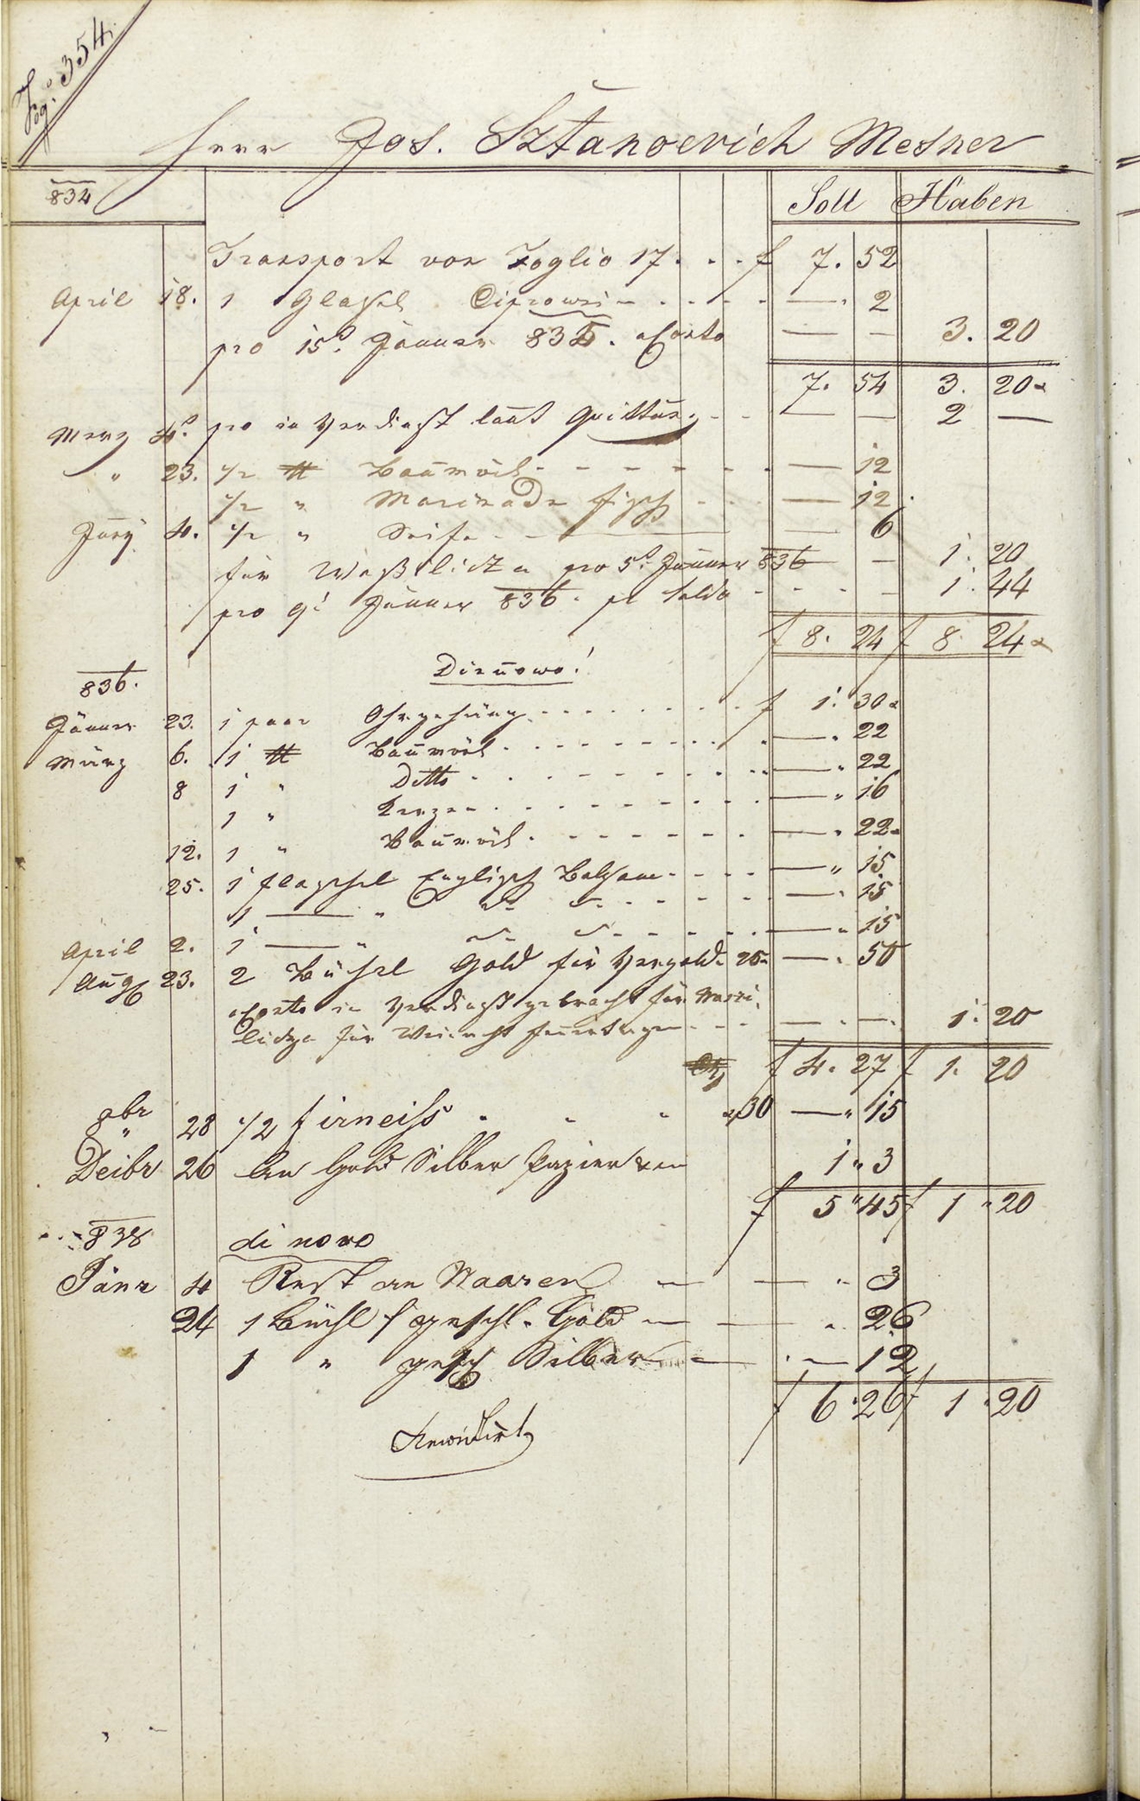 Fog: 354.
Herr Jos. Sztanoevich Mesner
834 Soll Haben
Transport von Foglio 17. . . f 7. 52
April 18. 1 Glasel - . - - - — . 2
pro 15t. Jänner 835. aConto — — 3. 20
7. 54 3. 20
Merz 4t. pro in Verdienst laut Quittung - - — — 2 —
" 23. 1/2 ℔ Baumöel - - - - - - — 12
1/2 " Marinade fisch - - - — 12
Juny 4. 1/2 " Seife - - — 6
für pro 5t. Jänner 836 — — 1. 20
pro 9t Jänner 836. pr Saldo - - - - 1. 44
f 8. 24 f 8. 24
836. Dienowo!
Jänner 23. 1 paar Ohrgehäng - - - - - - - - f 1. 30
März 6. 1 ℔ Baumöel . - - - - - - - — . 22
8 1 " Ditto - - - - - - - - — " 22
1 " Kerzen - - - - - - - - — " 16
12. 1 " Baumöel . - - - - - - — . 22
25. 1 flaschel Englisch Balsam - - - - — " 15
1 — " - - - - — . 15
April 2. 1 — " - - - - - — " 15
Aug 23. 2 Büchel Gold für Vergold. 25 — . 50
aConto in Verdienst gebracht für
für Weinacht feuertagen - - - — . — . 1. 20
f 4. 27 f 1. 20
9br " 28 1/2 firneiss " " " 30 — " 15
Deibr 26 An Gold Silber Papier 1 " 3
f 5 " 45 f 1 " 20
838 di novo
Jänr 4 Rest an Waaren — — " 3
24 1 Büchl geschl. Gold — — " 26
1 " gesch Silber — . — 12
f 6. 26 f 1. 20